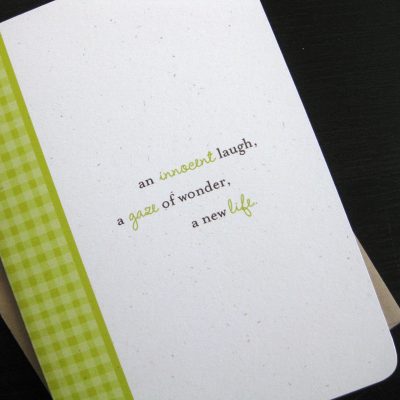 an innocent laugh,
a gaze of wonder,
a new life.